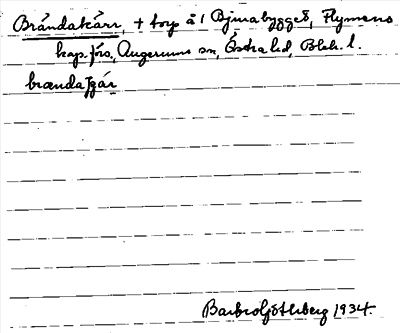 Brändakärr, + torp å 1 Bjurabygget, Flymens
kap. förs, Augerums sn, Östra hd, Blek. l.
brœndaʃɟár
Barbro Götherberg 1934.